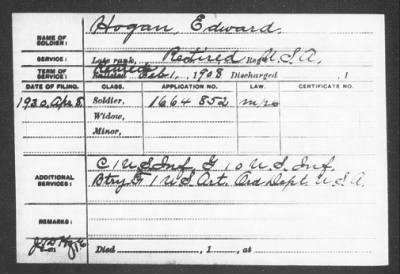 NAME OF SOLDIER: Hogan, Edward.
SERVICE: Late rank, Retired Reg't U.S.A.
TERM OF SERVICE: Retired Enlisted Feb 1, 1908 Discharged , 1
DATE OF FILING. CLASS. APPLICATION NO. LAW. CERTIFICATE NO.
1930, Apr. 8 Soldier, 1664852
Widow,
Minor,
ADDITIONAL SERVICES: C 1 U.S. Inf. G 10 U.S. Inf.
Btry F 1 U.S. Art. Ord Dept. U.S.A.
REMARKS:
Died , 1 , at